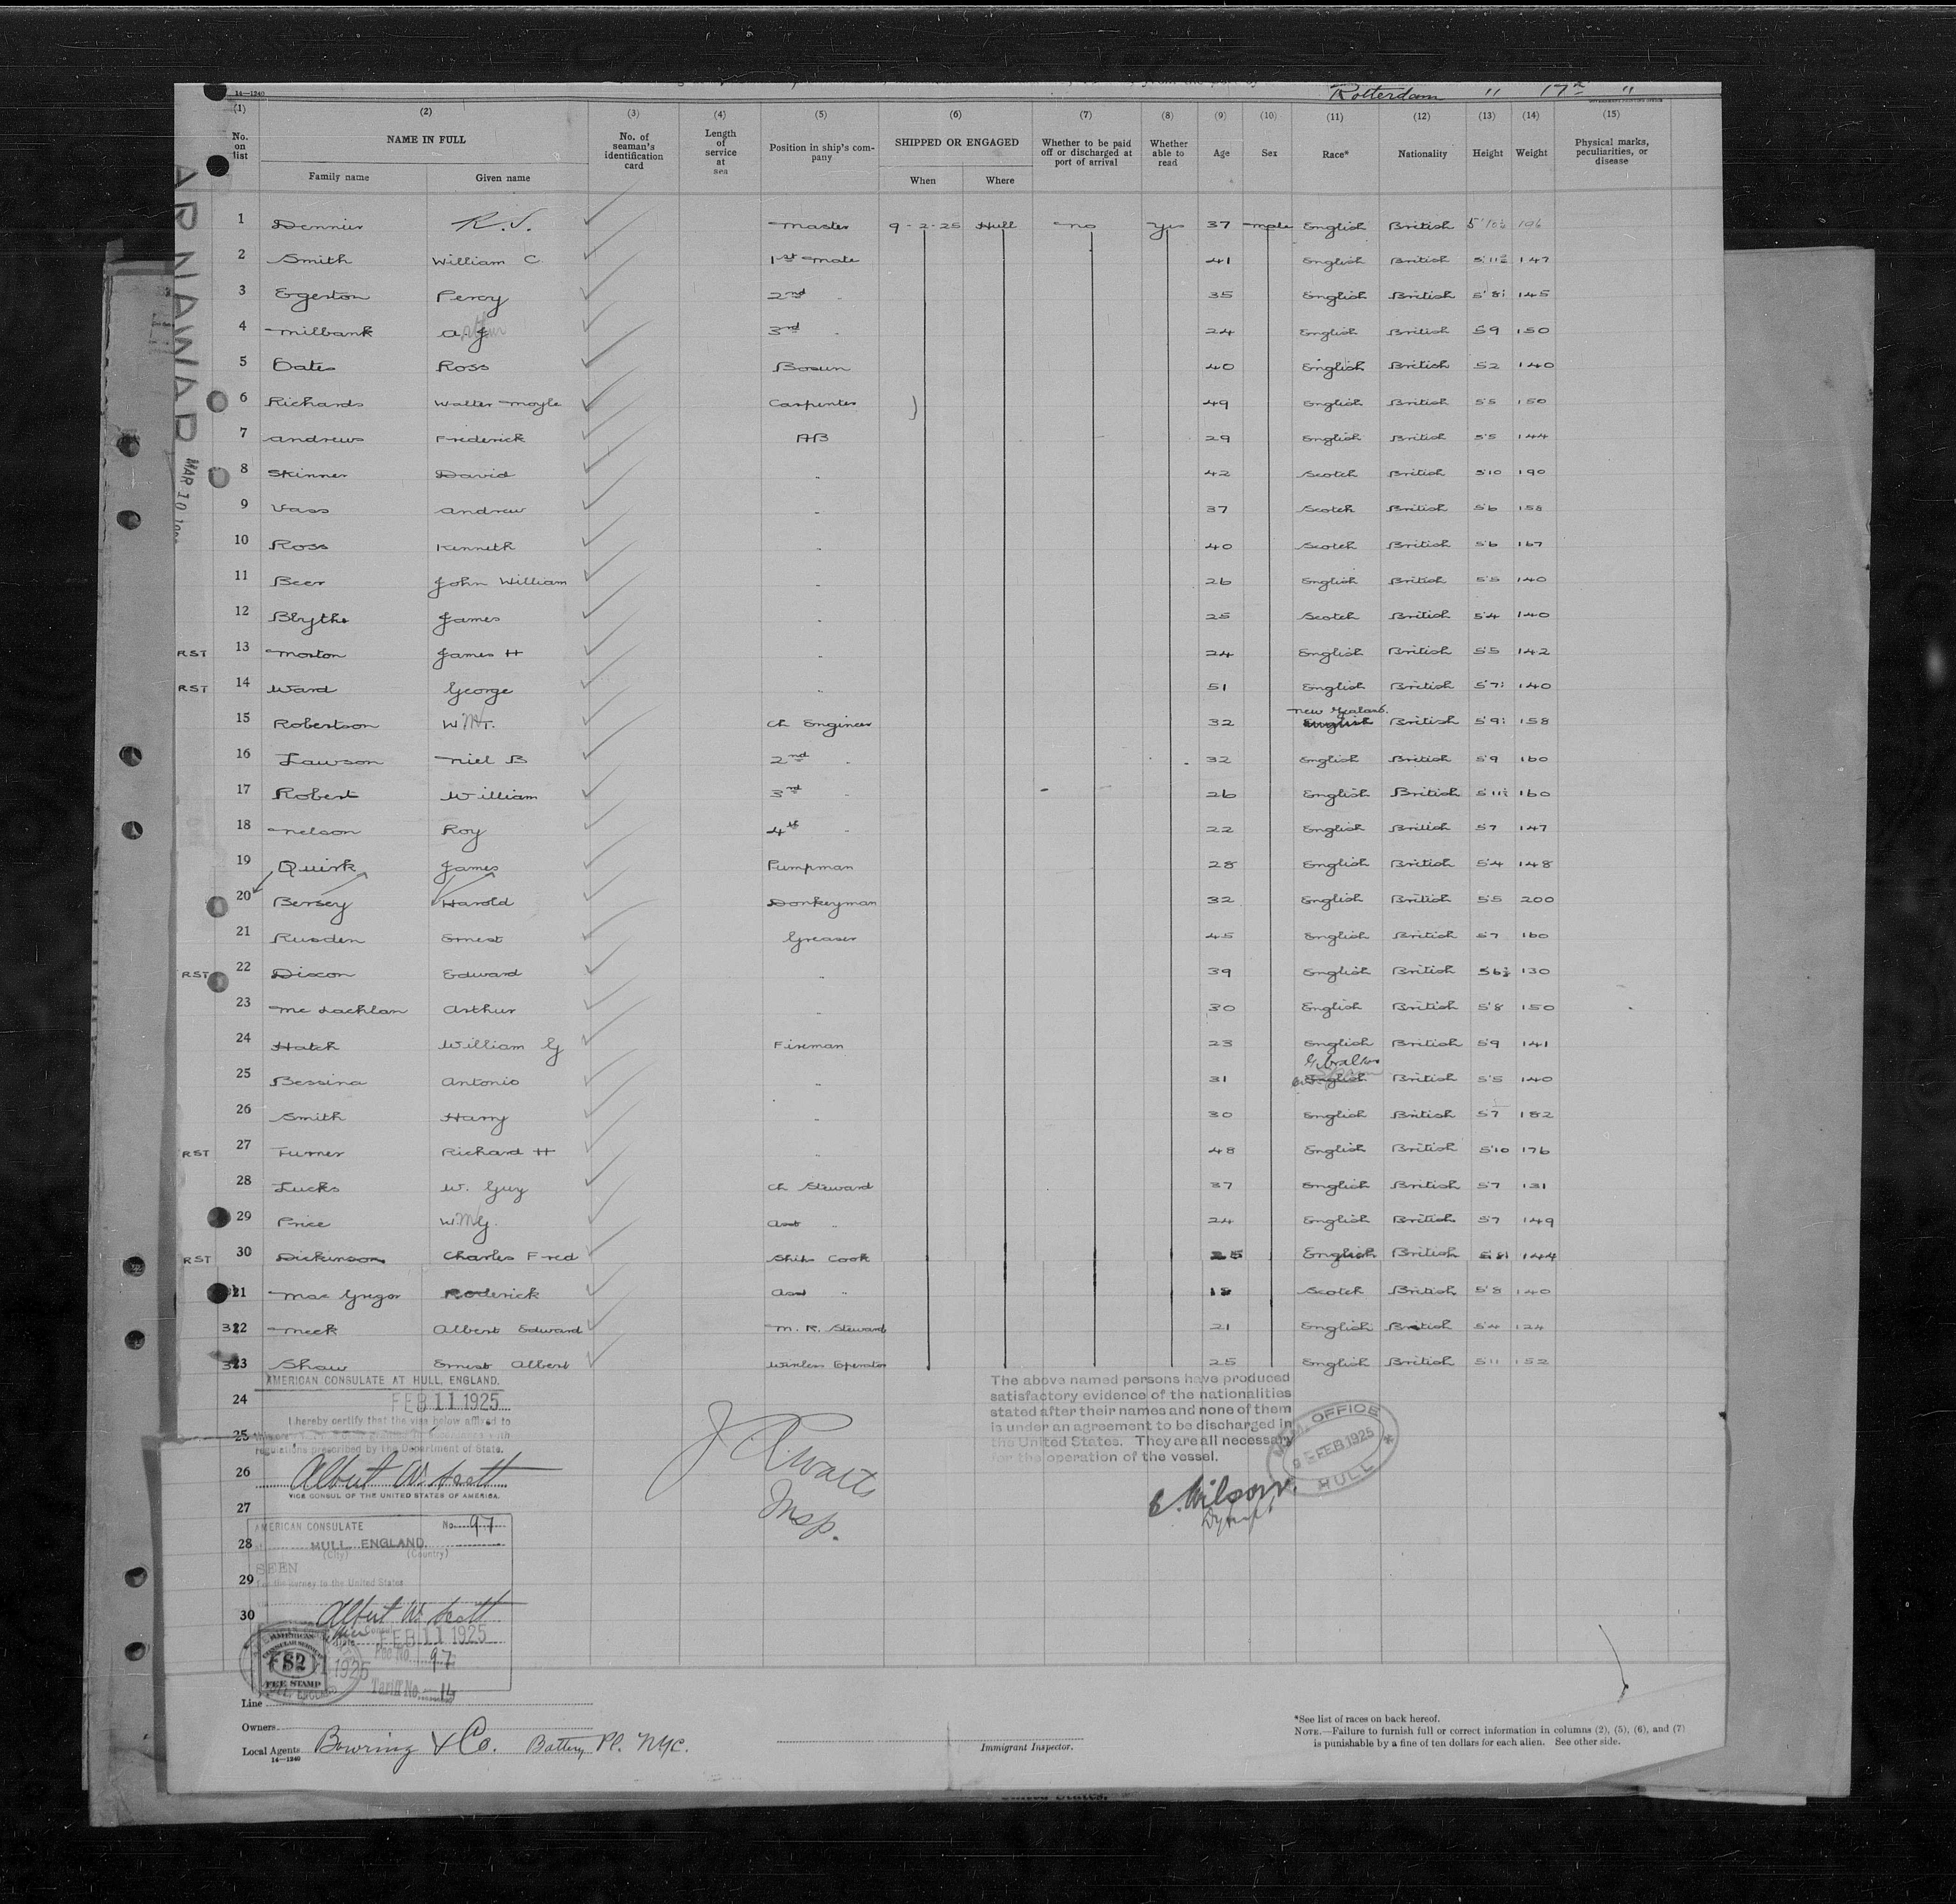 Rotterdam " 17th "
14—1240
(1) (2) (3) (4) (5) (6) (7) (8) (9) (10) (11) (12) (13) (14) (15)
No. on list NAME IN FULL No. of seaman's identification card Length of service at sea Position in ship's company SHIPPED OR ENGAGED Whether to be paid off or discharged at port of arrival Whether able to read Age Sex Race* Nationality Height Weight Physical marks, peculiarities, or disease
Family name Given name When Where
1 Dennier R. J. Master 9-2-25 Hull no Yes 37 male English British 196
2 Smith William C. 1st Mate 41 English British 5'11½ 147
3 Egerton Percy 2nd " 35 English British 5'8 145
4 Milbank A. J. 3rd " 24 English British 5'9 150
5 Oates Ross Bosun 40 English British 5'2 140
6 Richards Walter Moyle Carpenter 49 English British 5'5 150
7 Andrews Frederick AB 29 English British 5'5 144
8 Skinner David " 42 Scotch British 5'10 190
9 Vass Andrew " 37 Scotch British 5'6 158
10 Ross Kenneth " 40 Scotch British 5'6 167
11 Beer John William " 26 English British 5'5 140
12 Blythe James " 25 Scotch British 5'4 140
RST 13 Morton James H " 24 English British 5'5 142
RST 14 Ward George " 51 English British 5'7 140
15 Robertson W.M.T. Ch Engineer 32 New Zealand English British 5'9 158
16 Lawson Niel B 2nd " 32 English British 5'9 160
17 Robert William 3rd " 26 English British 5'11½ 160
18 Nelson Roy 4th " 22 English British 5'7 147
19 Quirk James Pumpman 28 English British 5'4 148
20 Bersey Harold Donkeyman 32 English British 5'5 200
21 Rusden Ernest Greaser 45 English British 5'7 160
RST 22 Dixon Edward " 39 English British 5'6½ 130
23 Mc Lachlan Arthur " 30 English British 5'8 150
24 Hatch William G Fireman 23 English British 5'9 141
25 Bessina Antonio " 31 Gibraltar English British 5'5 140
26 Smith Harry " 30 English British 5'7 182
RST 27 Turner Richard H " 48 English British 5'10 176
28 Lucks W. Guy Ch Steward 37 English British 5'7 131
29 Price W.M.G. Asst " 24 English British 5'7 149
RST 30 Dickinson Charles Fred Ship Cook 25 English British 5'8 144
31 Mac Gregor Roderick Asst " 18 Scotch British 5'8 140
32 Meek Albert Edward M. R. Steward 21 English British 5'4 124
33 Shaw Ernest Albert Wireless Operator 25 English British 5'11 152
ARNAWAD
MAR 10
AMERICAN CONSULATE AT HULL, ENGLAND.
24 FEB 11 1925
I hereby certify that the visa below affixed to
25 regulations prescribed by the Department of State.
26 Albert W. Scott
VICE CONSUL OF THE UNITED STATES OF AMERICA.
27
The above named persons have produced
satisfactory evidence of the nationalities
stated after their names and none of them
is under an agreement to be discharged in
the United States. They are all necessary
for the operation of the vessel.
OFFICE
FEB 1925
HULL
Insp.
AMERICAN CONSULATE No. 97
28 HULL, ENGLAND.
(City) (Country)
SEEN
29 For the journey to the United States
30 Albert W. Scott
FEB 11 1925
Fee No. 97
Tariff No. 14
AMERICAN
CONSULAR SERVICE
$2
FEE STAMP
Line
Owners
Local Agents Bowring & Co. Battery Pl. NYC.
14—1240
Immigrant Inspector.
*See list of races on back hereof.
NOTE.—Failure to furnish full or correct information in columns (2), (5), (6), and (7)
is punishable by a fine of ten dollars for each alien. See other side.